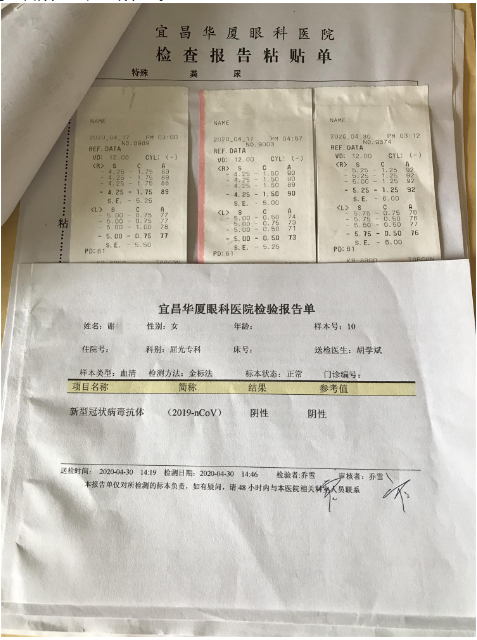 宜昌华厦眼科医院
检查报告粘贴单
特殊 类 尿
粘
NAME
2020_04_17 PM 03:00
NO.8989
REF.DATA
VD: 12.00 CYL: (-)
<R> S C A
- 4.25 - 1.75 89
- 4.25 - 1.75 89
- 4.25 - 1.75
- 4.25 - 1.75 89
S.E. - 5.25
<L> S C A
- 5.00 - 0.75 77
- 5.00 - 0.75 77
- 5.00 - 1.00 78
- 5.00 - 0.75 77
S.E. - 5.50
PD:61
NAME
2020_04_17 PM 04:57
REF.DATA
VD: 12.00 CYL: (-)
<R> S C A
- 4.25 - 1.50 90
- 4.25 - 1.50 90
- 4.25 - 1.50 89
- 4.25 - 1.50 90
S.E. - 5.00
<L> S C A
- 5.00 - 0.50 74
- 5.00 - 0.50 70
- 5.00 - 0.50 71
- 5.00 - 0.50 73
S.E. - 5.25
PD:61
NAME
2020_04_30 PM 03:12
NO.9374
REF.DATA
VD: 12.00 CYL: (-)
<R> S C A
- 5.25 - 1.25 92
- 5.25 - 1.25 92
- 5.00 - 1.25 92
- 5.25 - 1.25 92
S.E. - 6.00
<L> S C A
- 5.75 - 0.50 76
- 5.75 - 0.50 76
- 5.75 - 0.50 77
- 5.75 - 0.50 76
S.E. - 6.00
PD:61
TOPCON
宜昌华厦眼科医院检验报告单
姓名：谢 性别：女 年龄： 样本号：10
住院号： 科别：屈光专科 床号： 送检医生：胡学斌
样本类型：血清 检测方法：金标法 标本状态：正常 门诊编号：
项目名称 简称 结果 参考值
新型冠状病毒抗体 （2019-nCoV） 阴性 阴性
送检时间： 2020-04-30 14:19 检测日期：2020-04-30 14:46 检验者:乔雪 审核者：乔雪
本报告单仅对所检测的标本负责，如有疑问，请48小时内与本医院相关科室人员联系